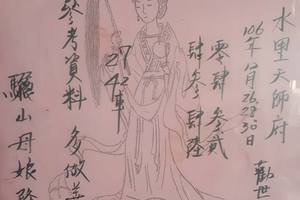 水里天師府
106年八月26.28.30日
勸世
零肆 叁貳
肆叁肆陸
27
42車
參考資料 多做善
驪山母娘